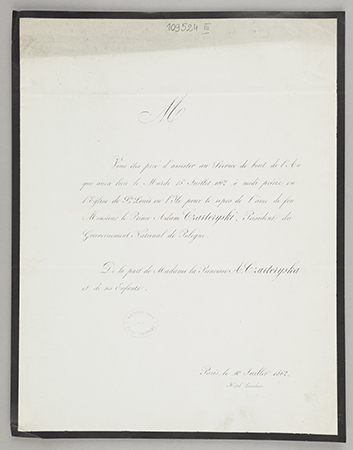 109524 III
M
Vous êtes prié d'assister au Service de bout de l'An
qui aura lieu le Mardi 15 Juillet 1862 à midi précis en
l'Eglise de St Louis en l'Ile pour le repos de l'âme de feu
Monsieur le Prince Adam Czartoryski, Président du
Gouvernement National de Pologne.
De la part de Madame la Princesse A. Czartoryska
et de ses Enfants.
Paris, le 10 Juillet 1862.
Hôtel Lambert